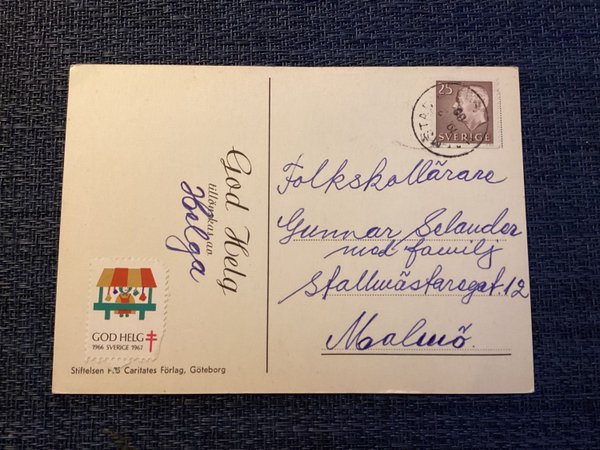 God Helg
tillönskas av
Helga
GOD HELG
1966 SVERIGE 1967
Stiftelsen Caritates Förlag, Göteborg
25
SVERIGE
Folkskollärare
Gunnar Selander
med familj
Stallmästaregat. 12
Malmö.